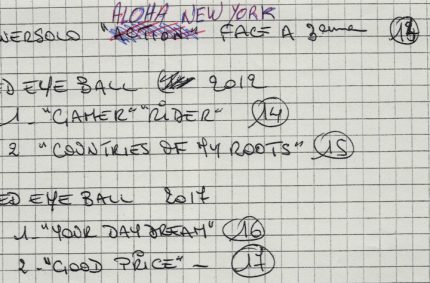 ALOHA NEW YORK
VERSOLO "ACTION" FACE A 3eme
ED EYE BALL 2012
1 - "GAMER" "RIDER" 14
2 "COUNTRIES OF MY ROOTS" 15
ED EYE BALL 2017
1 - "YOUR DAY DREAM" 16
2 - "GOOD PRICE" - 17